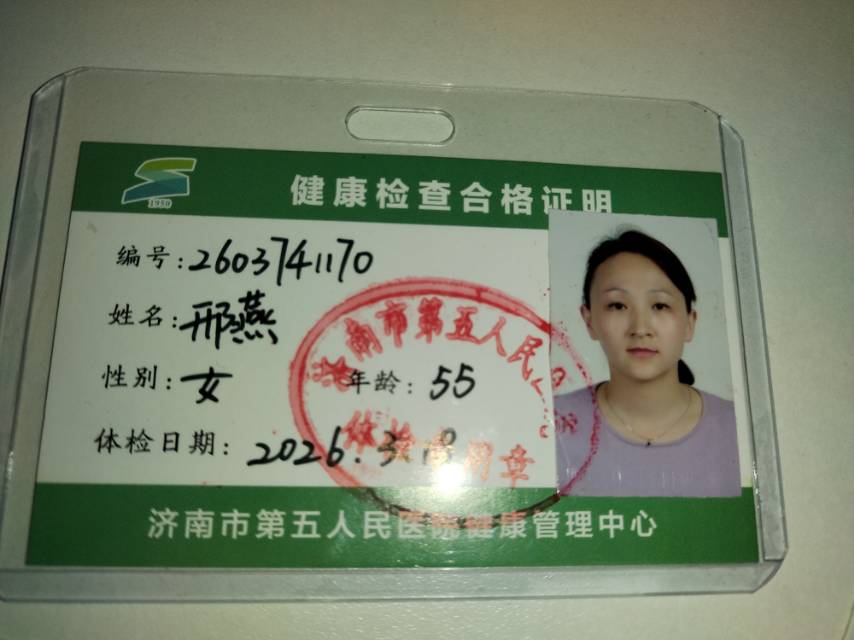 1950
健康检查合格证明
编号:2603741170
姓名:邢燕
性别:女 年龄:55
体检日期:2026.3.
济南市第五人民
体检专用章
济南市第五人民医院健康管理中心